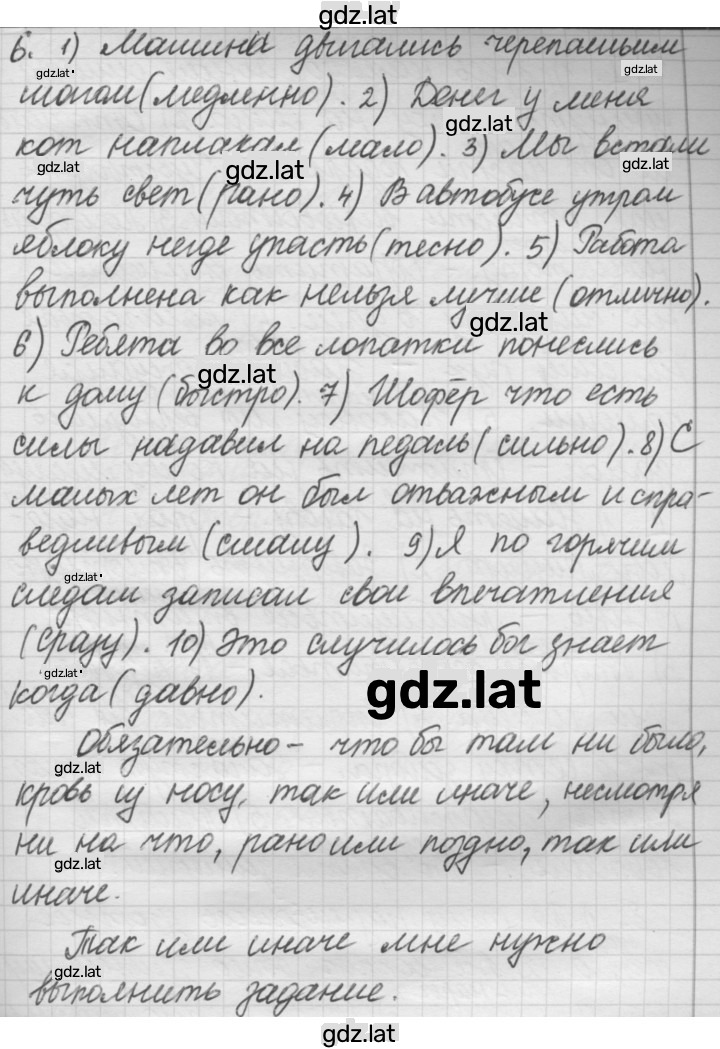 gdz.lat
6. 1) Машина двигались черепашьим
gdz.lat
gdz.lat
шагом (медленно). 2) Денег у меня
gdz.lat
кот наплакал (мало). 3) Мы встали
gdz.lat
gdz.lat
gdz.lat
чуть свет (рано). 4) В автобусе утром
яблоку негде упасть (тесно). 5) Работа
выполнена как нельзя лучше (отлично).
gdz.lat
6) Ребята во все лопатки понеслись
gdz.lat
к дому (быстро). 7) Шофёр что есть
силы надавил на педаль (сильно). 8) С
малых лет он был отважным и спра-
ведливым (смалу). 9) Я по горячим
gdz.lat
следам записал свои впечатления
(сразу). 10) Это случилось бог знает
gdz.lat
когда (давно).
gdz.lat
Обязательно - что бы там ни было,
gdz.lat
кровь из носу, так или иначе, несмотря
ни на что, рано или поздно, так или
gdz.lat
иначе.
Так или иначе мне нужно
gdz.lat
выполнить задание.
gdz.lat